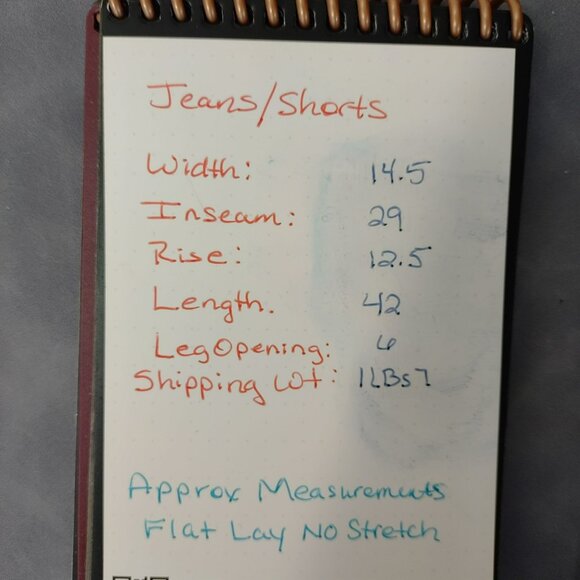 Jeans/Shorts
Width: 14.5
Inseam: 29
Rise: 12.5
Length. 42
Leg Opening: 6
Shipping Wt: 1LBs7
Approx Measurements
Flat Lay No Stretch